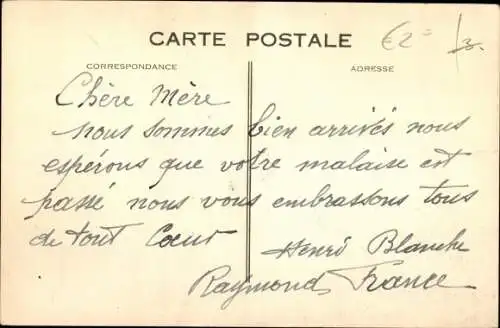 CARTE POSTALE
€2= 3.
CORRESPONDANCE ADRESSE
Chère Mère
nous sommes bien arrivés nous
espérons que votre malaise est
passé nous vous embrassons tous
de tout Cœur
Henri Blanche
Raymond France